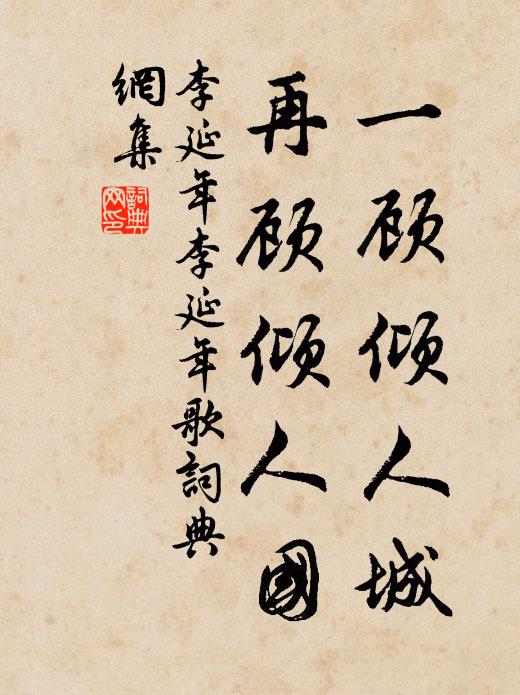 一顾倾人城
再顾倾人國
李延年李延年歌詞典
網集
詞典网印